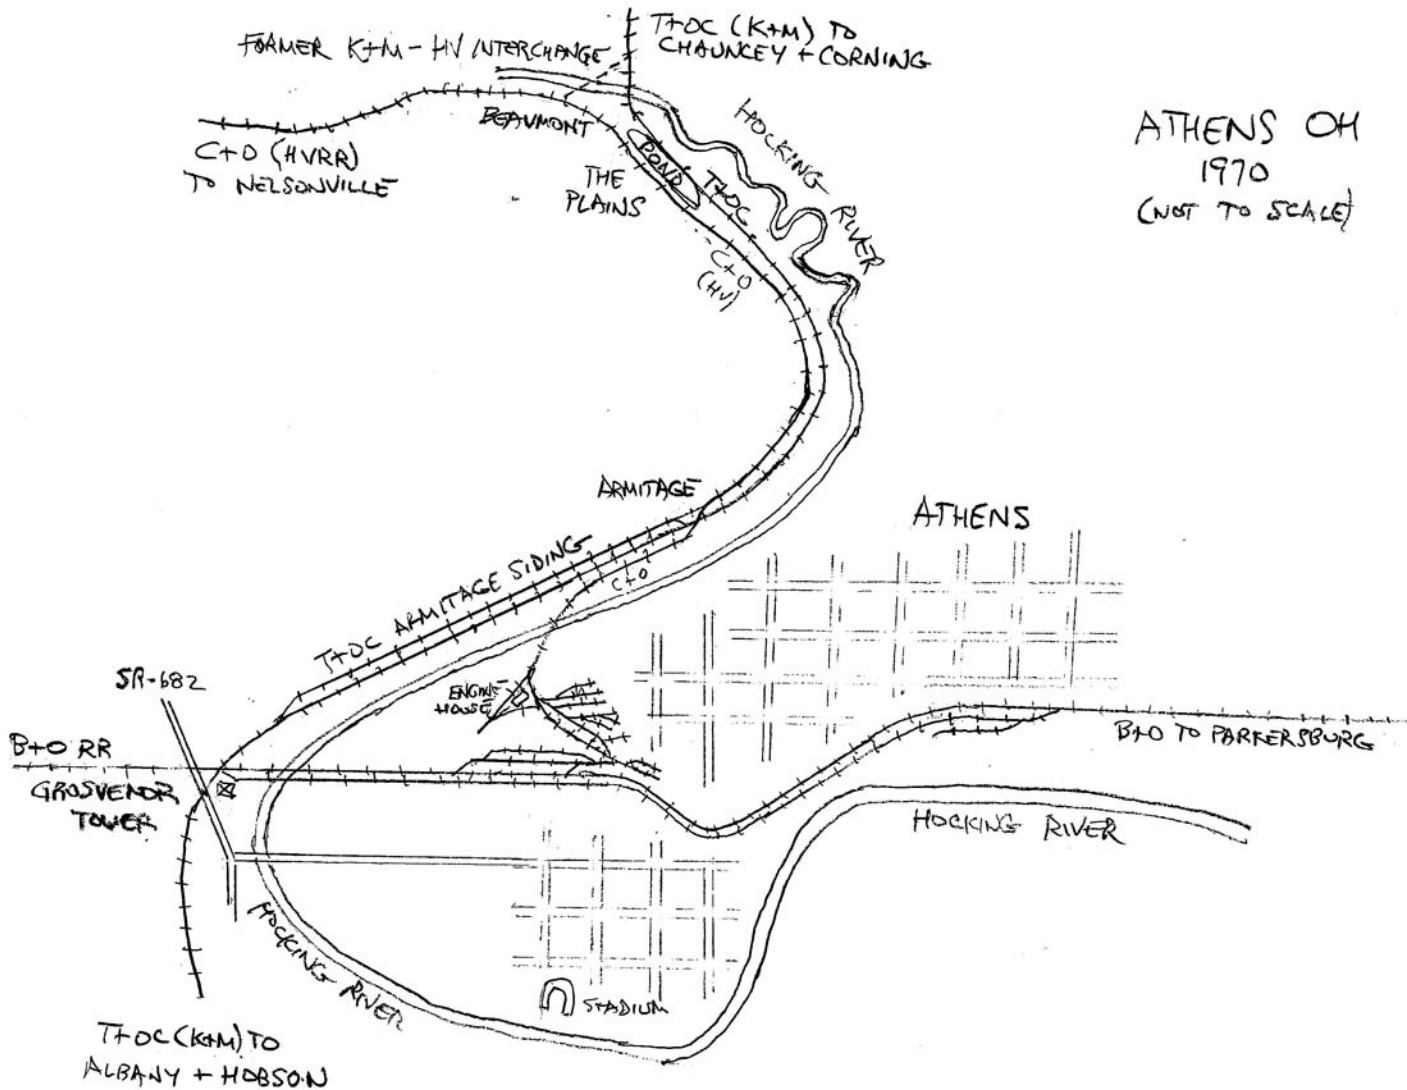 FORMER K+M - HV INTERCHANGE
T+OC (K+M) TO
CHAUNCEY + CORNING
ATHENS OH
1970
(NOT TO SCALE)
BEAUMONT
C+O (HVRR)
TO NELSONVILLE
THE
PLAINS
POND
T+OC
HOCKING RIVER
C+O
(HV)
ARMITAGE
ATHENS
T+OC ARMITAGE SIDING
C+O
SR-682
ENGINE
HOUSE
B+O RR
GROSVENOR
TOWER
B+O TO PARKERSBURG
HOCKING RIVER
HOCKING RIVER
STADIUM
T+OC (K+M) TO
ALBANY + HOBSON